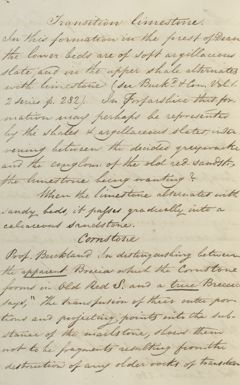 Transition limestone.
In this formation in the forest of Dean
the lower beds are of soft argillaceous
slate and in the upper shale alternates
with limestone (see Buckd & Con. Vol 1.
2 series p. 232). In Forfarshire this for-
mation may perhaps be represented
by the shales & argillaceous slates inter
vening between the decided greywacke
and the conglom. of the old red sandst.
the limestone being wanting?
When the limestone alternates with
sandy beds, it passes gradually into a
calcareous sandstone.
Cornstone
Prof. Buckland in distinguishing between
the apparent Breccia which the Cornstone
forms in Old Red S. and a true Breccia
says, "The transfusion of their outer por-
tions and projecting points into the sub-
stance of the marlstone, shows them
not to be fragments resulting from the
destruction of any older rocks of transition